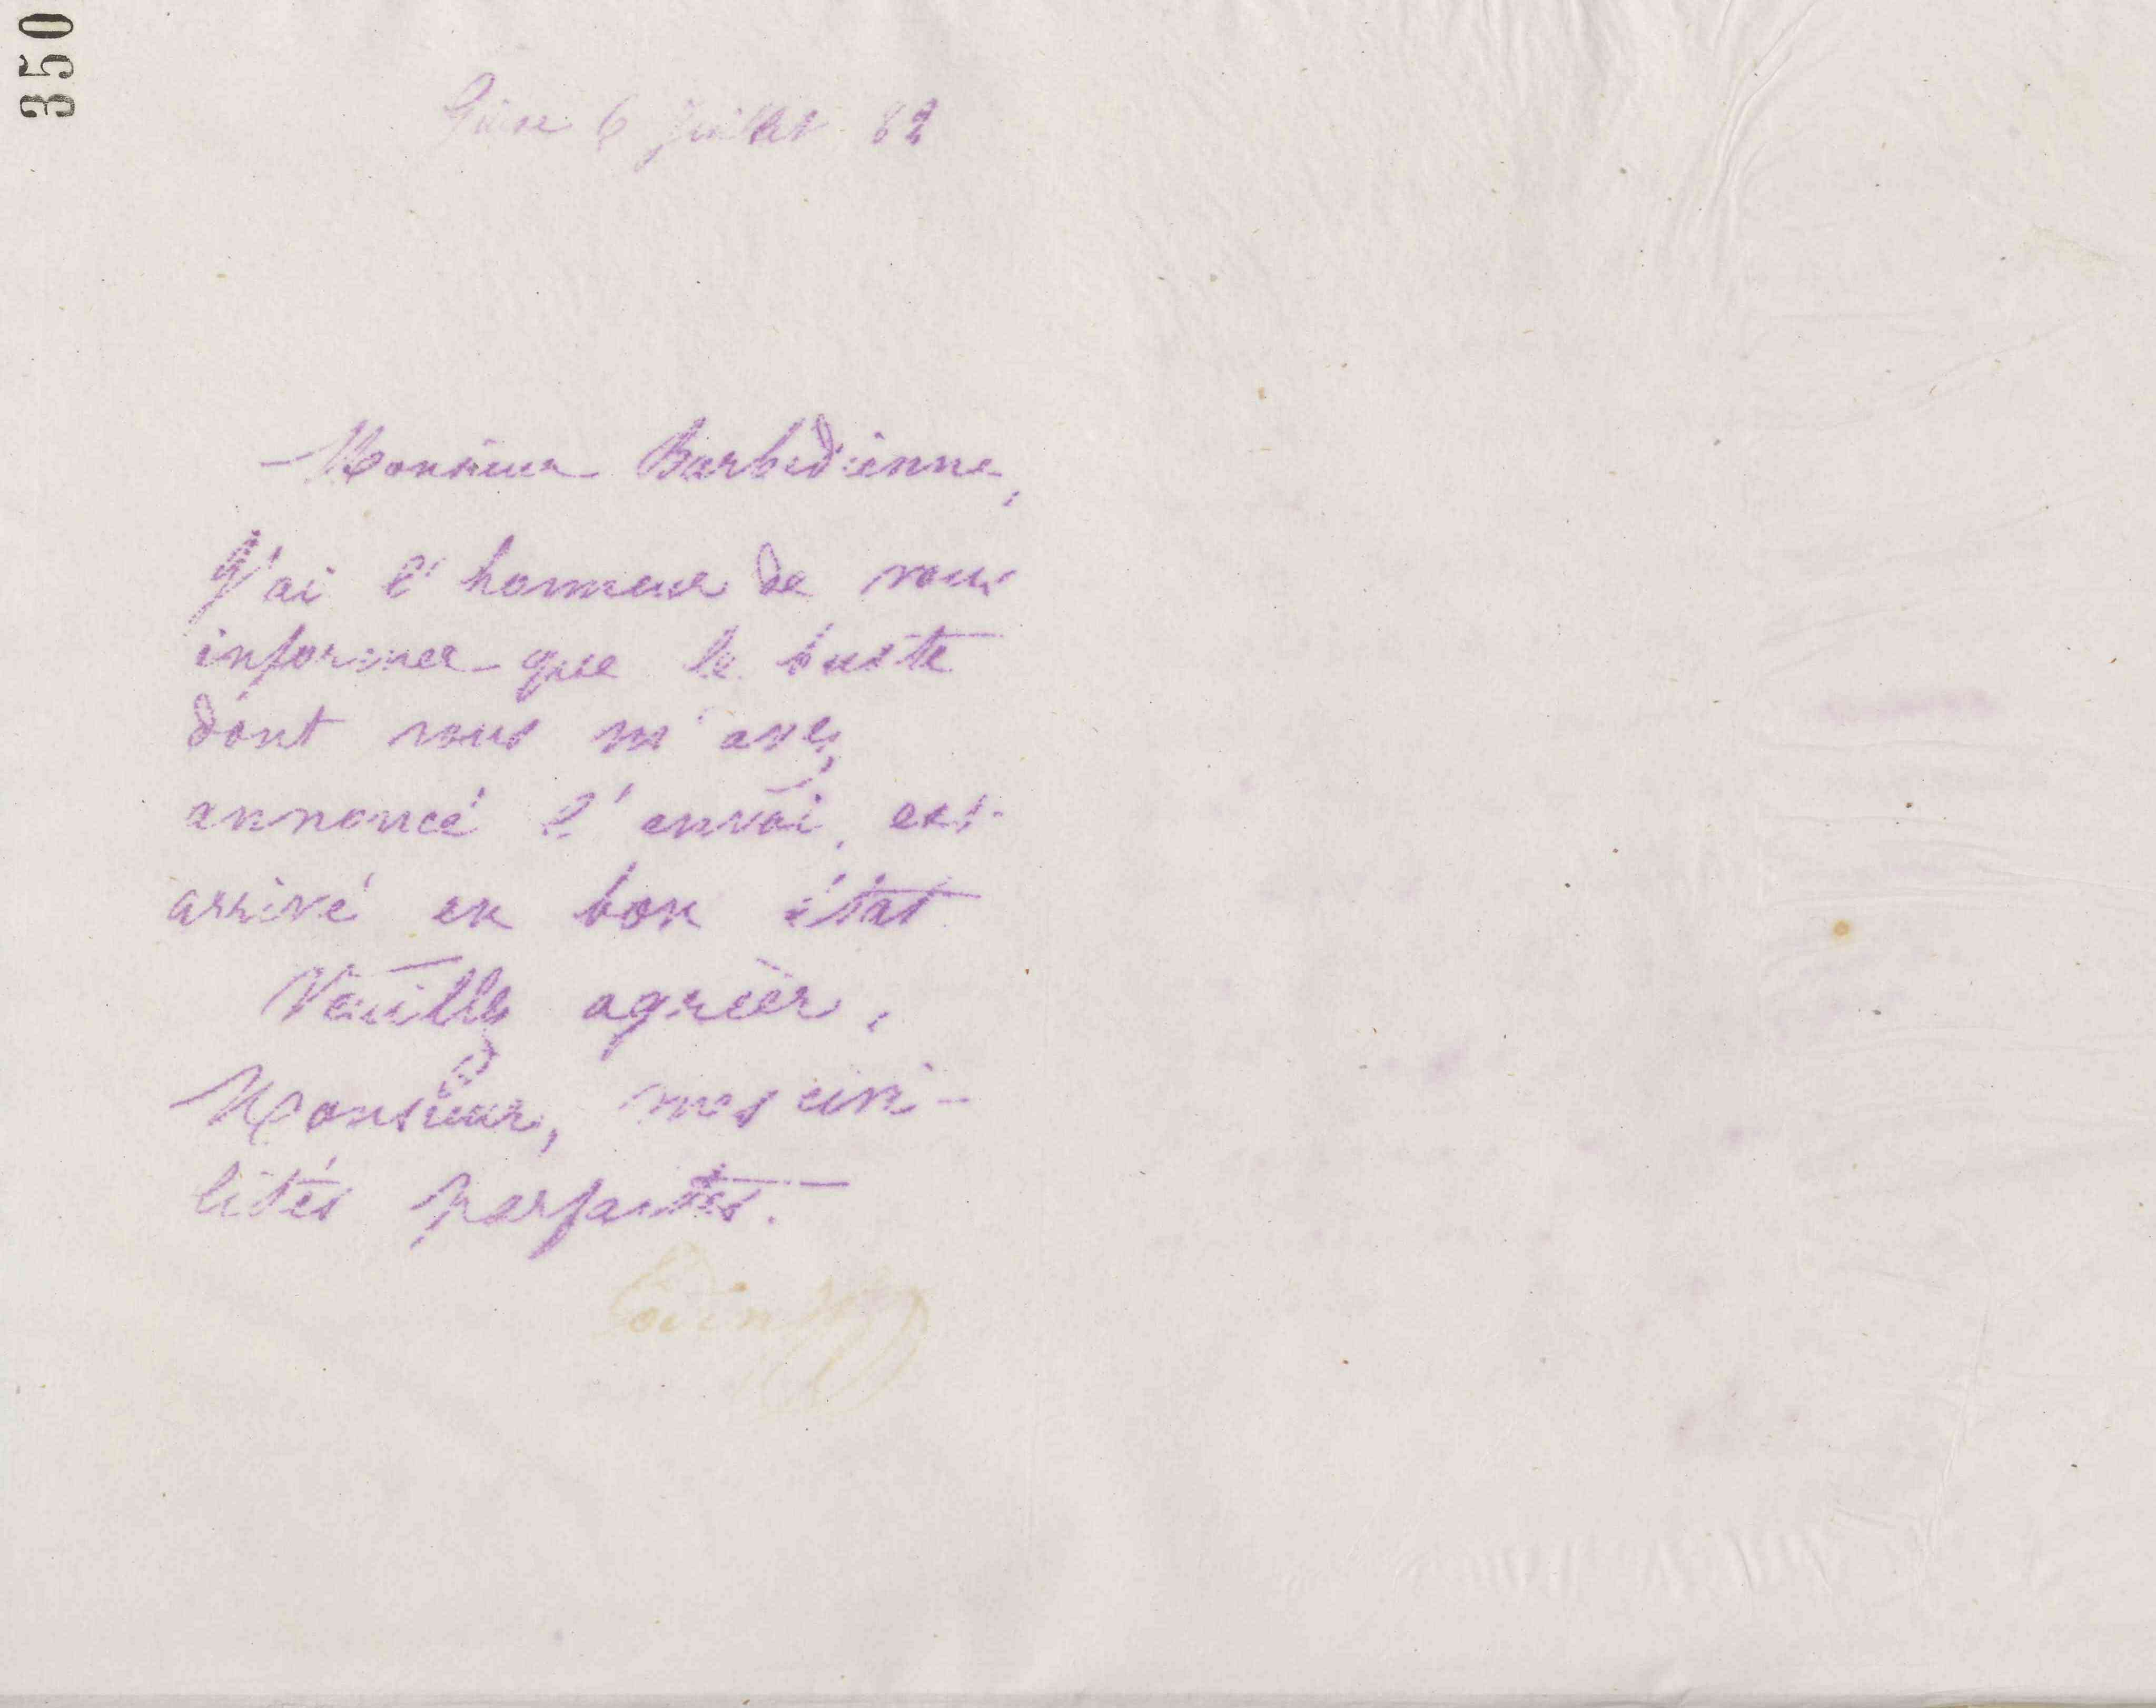 350
Guise 6 Juillet 82
Monsieur Barbedienne,
J'ai l'honneur de vous
informer que le buste
dont vous m'avez
annoncé l'envoi, est
arrivé en bon état
Veuillez agréer,
Monsieur, mes civi-
lités parfaites.
Godin